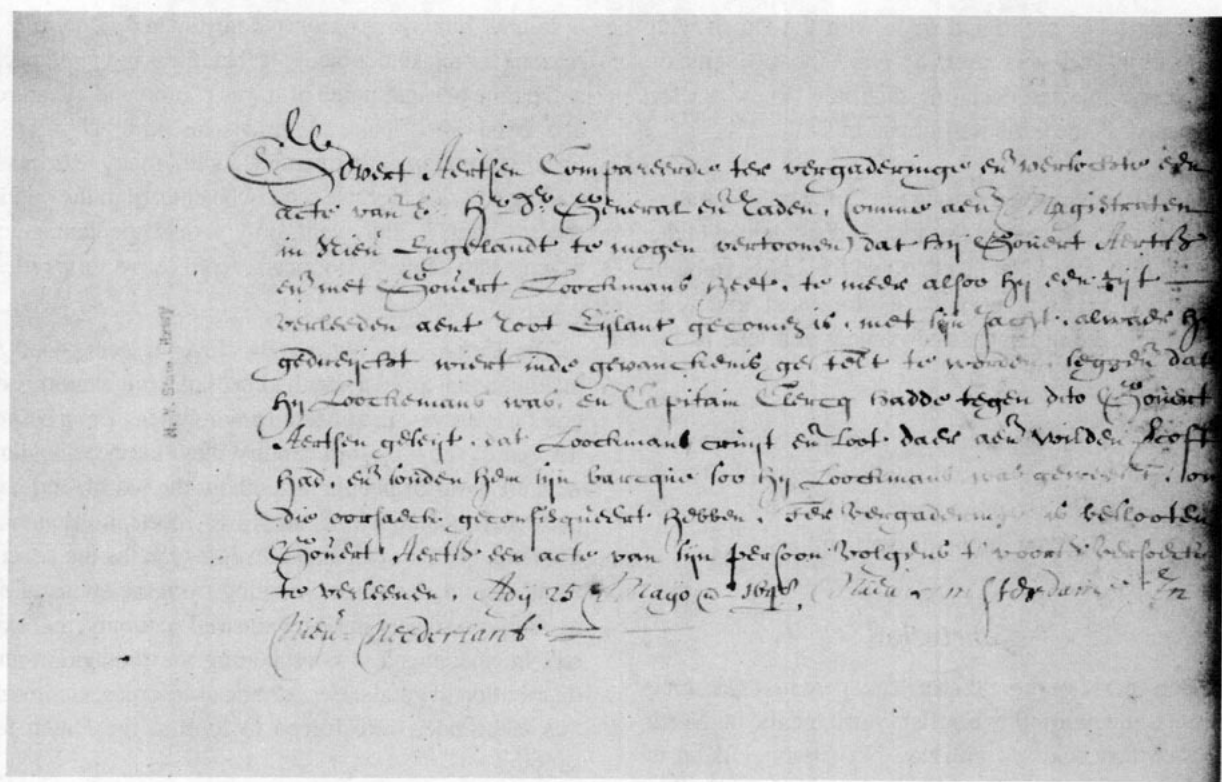 Govert Aertsen Compareerde ter vergaderinge en̄ versochte een
acte van̄ E. Hr. Dr. Generael en̄ Raden, (omme aen̄ Magistraten
in Nieu Engelandt te mogen vertoonen) dat hij Govert Aertsz
en̄ niet Govert Loockmans heet, te meer alsoo hij een tijt
verleeden aent Root Eijlant gecomen is, met sijn Jacht, alwaer hij
gedreijcht wiert inde gevanckenis gestelt te worden, seggen̄ dat
hij Loockemans was, en Capitain Clercq hadde tegen dito Govert
Aertsen geseijt, dat Loockmans cruijt en̄ loot daer aen̄ wilden vercoft
had, en̄ souden hem sijn barcque soo hij Loockmans was geweest, om
die oorsaeck geconfisqueert hebben. Ter vergaderinge is beslooten
Govert Aertsz een acte van sijn persoon volgens t voors versoeck
te verleenen. Adij 25 Mayo Ao 1648, Nieu Amsterdam In
Nieu Neederlant